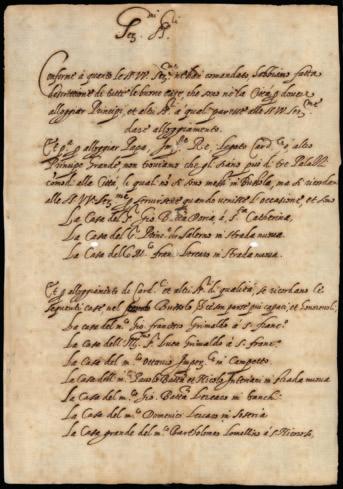 Ser.mi Sri
Conforme à quanto le SS. VV. Ser.me ne han comandato, habbiamo fatta
descrittione di tutte le buone case, che sono nè la Città, p dovere
alloggiar Principi, et altri SS.ri à quali paresse alle SS. VV. Ser.me
dare alloggiamento.
Et p.a p alloggiar Papa, Imp.re Re, Legato Card.le o, altro
Principe grande non troviamo che gli siano più di tre Palazzi
comodi alla Città, le quali nò si sono messi in Bussola, ma si ricordano
alle SS. VV. Ser.me p servirsene quando venisse l'occasione, et sono
La Casa del S.r Gio. Batta Doria à S.ta Catherina,
La Casa del S.r Princ.e di Salerno in strada nuova.
La Casa dello M.co fran.co Lercaro in strada nuova.
Et p alloggiamento di Card.li et altri SS.ri di qualità, se ricordano le
seguenti case nel Bussolo
La casa del m.co Gio. francesco Grimaldo à S. franc.co
La Casa dell' Ill. S.r Luca Grimaldo à S. franc.co
La Casa del m.co Ottavio Imper.le in Campetto
La Casa delli m.ci Paolo Batta et Nicolo Interiani in strada nuova
La Casa del m.co Gio. Batta Lercaro in banchi.
La Casa del m.co Domenico Lercaro in Soseria
La Casa grande del m.co Bartholomeo Lomellino à S.